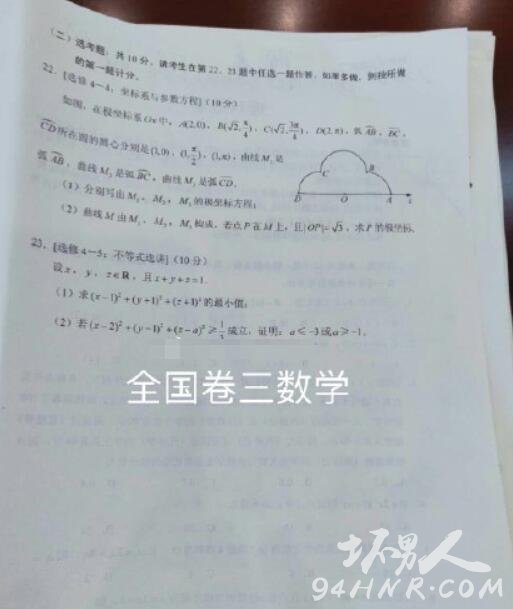 (二)选考题:共10分。请考生在第22、23题中任选一题作答。如果多做,则按所做
的第一题计分。
22.[选修4-4:坐标系与参数方程](10分)
如图,在极坐标系Ox中,A(2,0),B(√2,π/4),C(√2,3π/4),D(2,π),弧AB,BC,
CD所在圆的圆心分别是(1,0),(1,π/2),(1,π),曲线M₁是
弧AB,曲线M₂是弧BC,曲线M₃是弧CD.
(1)分别写出M₁,M₂,M₃的极坐标方程;
(2)曲线M由M₁,M₂,M₃构成,若点P在M上,且|OP|=√3,求P的极坐标.
C
B
D
O
A
x
23.[选修4-5:不等式选讲](10分)
设x,y,z∈R,且x+y+z=1.
(1)求(x-1)²+(y+1)²+(z+1)²的最小值;
(2)若(x-2)²+(y-1)²+(z-a)²≥1/3成立,证明:a≤-3或a≥-1.
全国卷三数学
坏男人
94HNR.COM